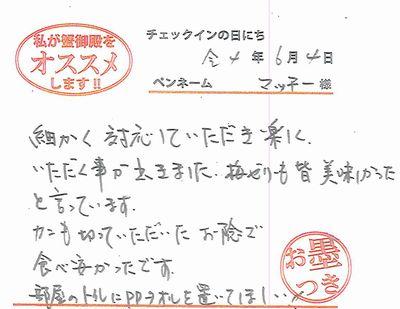 私が蟹御殿を
オススメ
します!!
チェックインの日にち
令4年6月4日
ペンネーム マッチー様
細かく対応していただき楽しく
いただく事が出きました。梅ゼリも皆美味しかった
と言っています。
カニも切っていただいたお陰で
食べ安かったです。
部屋のトイレにPPタオルを置いてほしい
お墨
つき